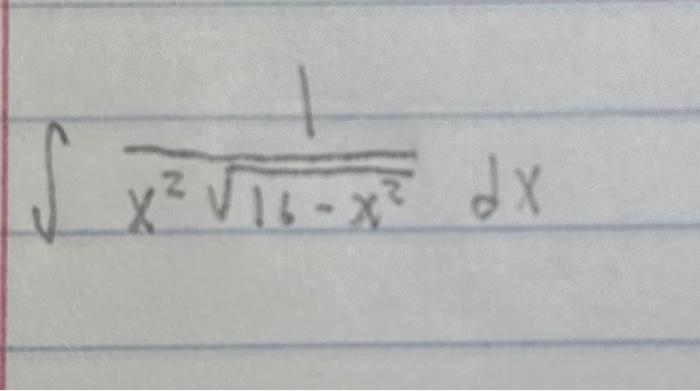 ∫ 1/(x² √(16 - x²)) dx